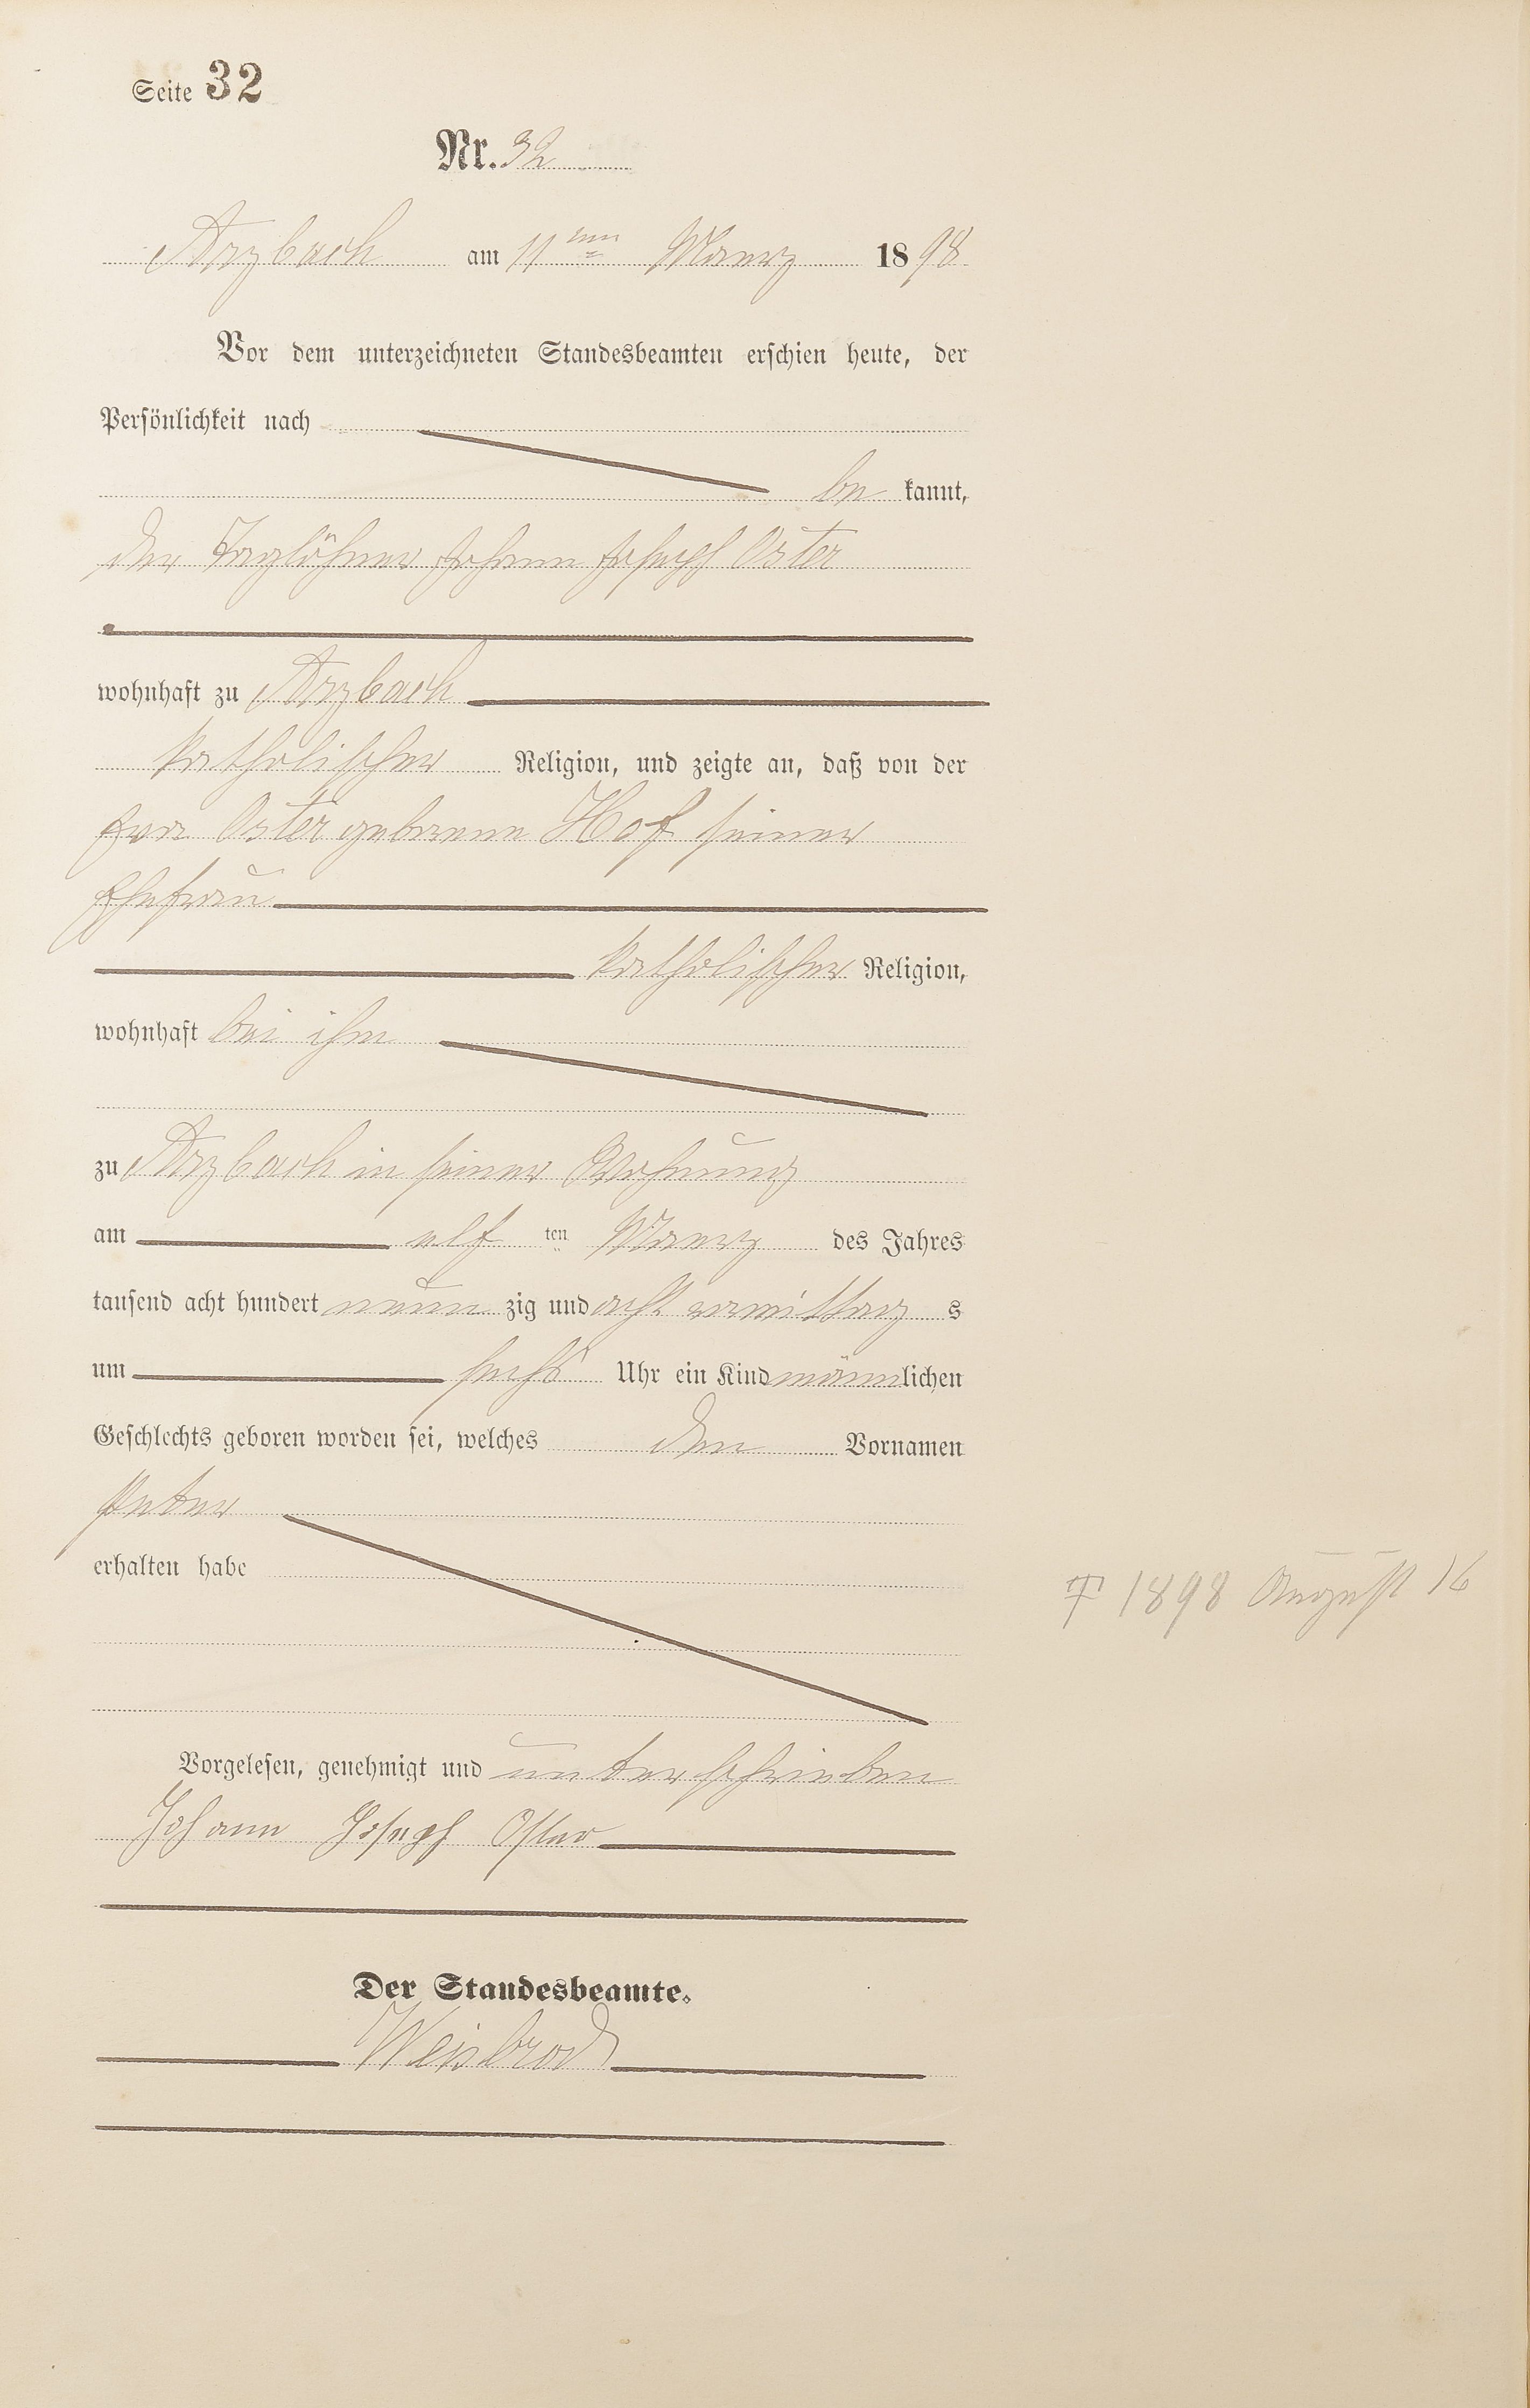 Seite 32
Nr. 32
Arzbach am 11ten Maerz 1898
Vor dem unterzeichneten Standesbeamten erschien heute, der
Persönlichkeit nach
be kannt,
der Taglöhner Johann Joseph Oster
wohnhaft zu Arzbach
katholischer Religion, und zeigte an, daß von der
Eva Oster geborene Hof seiner
Ehefrau
katholischer Religion,
wohnhaft bei ihm
zu Arzbach in seiner Wohnung
am elf ten Maerz des Jahres
tausend acht hundert neun zig und acht vormittag s
um sechs Uhr ein Kind männlichen
Geschlechts geboren worden sei, welches den Vornamen
Peter
erhalten habe
† 1898 August 16
Vorgelesen, genehmigt und unterschrieben
Johann Joseph Oster
Der Standesbeamte.
Weisbrod